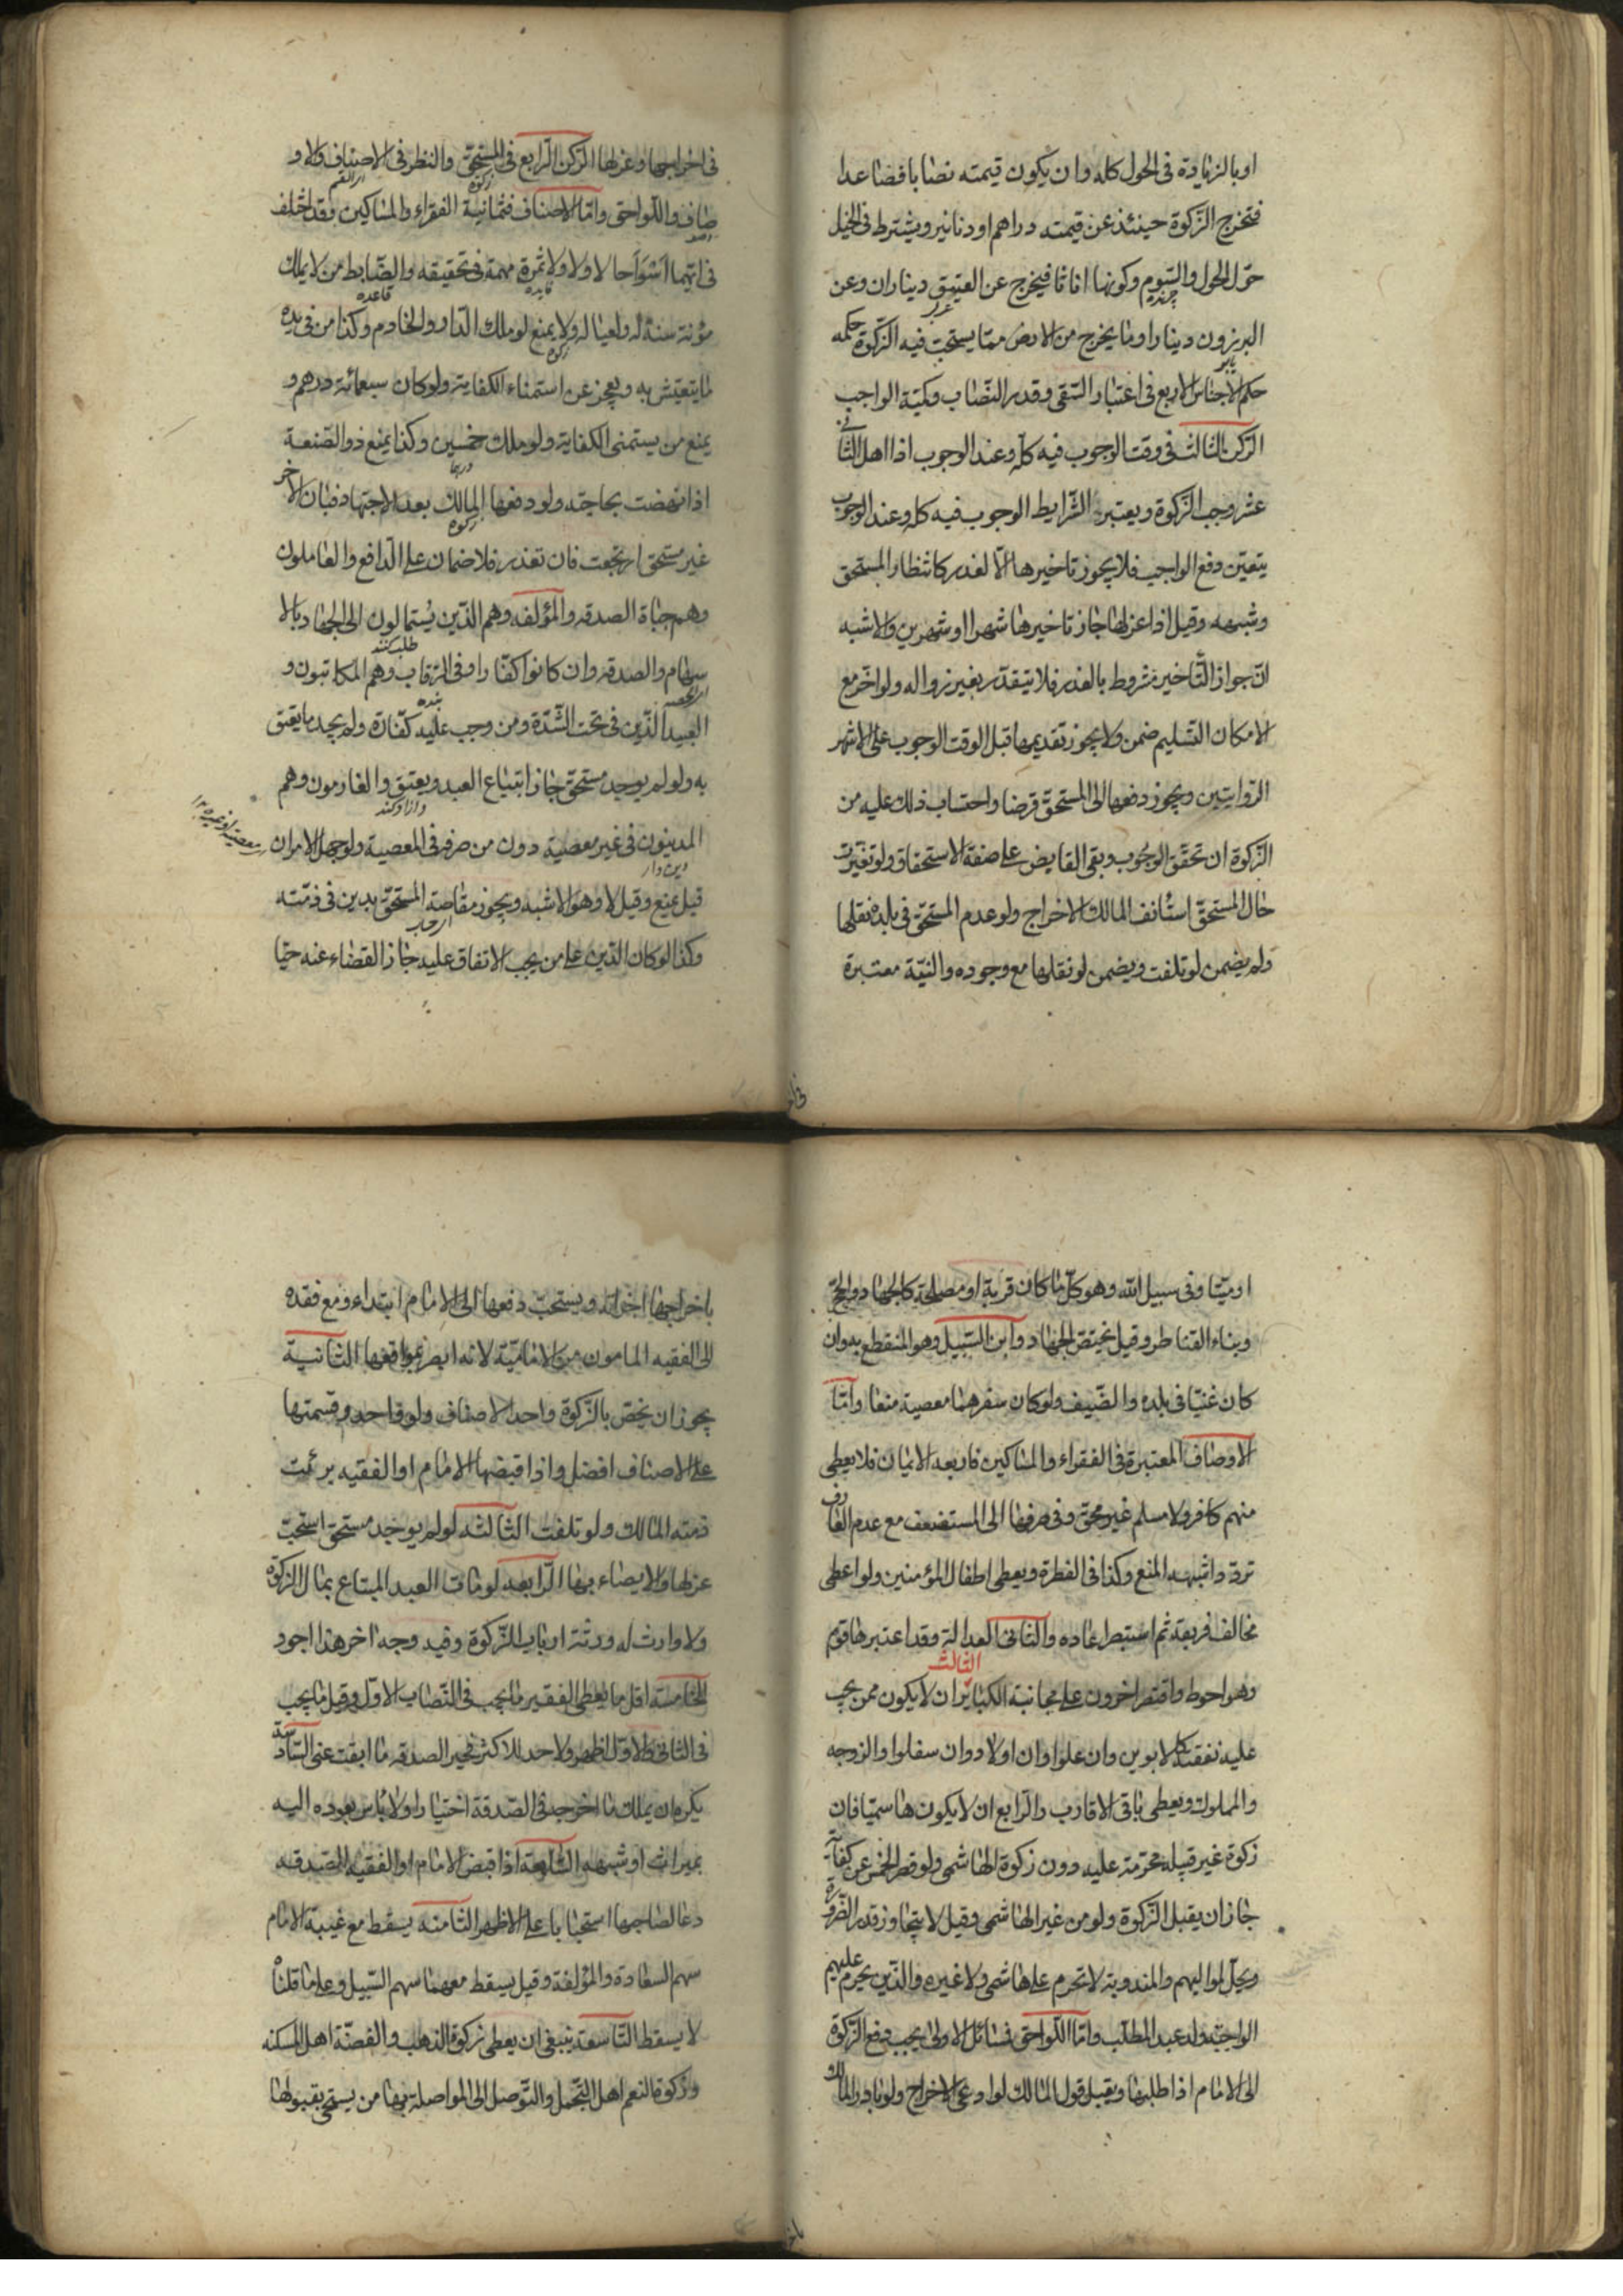 او بالزيادة فى الحول كله وان يكون قيمته نصابا فصاعدا
فتخرج الزكوة حينئذ عن قيمته دراهم او دنانير ويشترط فى الخيل
حؤل الحول والسوم وكونها اناثا فيخرج عن العتيق ديناران وعن
البرزون دينارا وما يخرج من الارض مما يستحب فيه الزكوة حكمه
حكم الاجناس الاربع فى اعتبار السقى وقدر النصاب وكمية الواجب
الركن الثالث فى وقت الوجوب فيه كله وعند الوجوب اذا اهل الثانى
عشر وجب الزكوة ويعتبر الشرايط الوجوب فيه كله وعند الوجوب
يتعين دفع الواجب فلا يجوز تاخيرها الا لعذر كانتظار المستحق
وشبهه وقيل اذا عزلها جاز تاخيرها شهرا او شهرين والاشبه
ان جواز التاخير مشروط بالعذر فلا يتقدر بغير زواله ولو اخر مع
الامكان التسليم ضمن ولا يجوز تقديمها قبل الوقت الوجوب على الاشهر
الروايتين ويجوز دفعها الى المستحق قرضا واحتساب ذلك عليه من
الزكوة ان تحقق الوجوب وبقى القابض على صفة الاستحقاق ولو تغيرت
حال المستحق استانف المالك الاخراج ولو عدم المستحق فى بلده نقلها
ولم يضمن لو تلفت ويضمن لو نقلها مع وجوده والنية معتبرة
فى اخراجها وعزلها الركن الرابع فى المستحق والنظر فى الاصناف والاو
صاف واللواحق واما الاصناف فثمانية الفقراء والمساكين فقد اختلف
فى ايهما اسوء حالا ولا ثمرة مهمة فى تحقيقه والضابط من لا يملك
فايده قاعده
مؤنة سنة له ولعياله ولا يمنع لو ملك الدار والخادم وكذا من فى يده
ما يتعيش به ويعجز عن استمناء الكفاية ولو كان سبعمائة درهم و
يمنع من يستمنى الكفاية ولو ملك خمسين وكذا يمنع ذو الصنعة
اذا نهضت بحاجته ولو دفعها المالك بعد الاجتهاد فبان الاخر
زكوة
غير مستحق ارتجعت فان تعذر فلا ضمان على الدافع والعاملون
وهم جباة الصدقه والمؤلفه وهم الذين يستمالون الى الجهاد بالا
طلب كنند
سهام والصدقه وان كانوا كفارا وفى الرقاب وهم المكاتبون و
العبيد الذين فى تحت الشدة ومن وجب عليه كفارة ولم يجد ما يعتق
به ولو لم يوجد مستحق جاز ابتياع العبد ويعتق والغارمون وهم
المدينون فى غير معصية دون من صرف فى المعصية ولو جهل الامران
قيل يمنع وقيل لا وهو الاشبه ويجوز مقاصة المستحق بدين فى ذمته
وكذا لو كان الدين على من يجب الانفاق عليه جاز القضاء عنه حيا
او ميتا وفى سبيل الله وهو كل ما كان قربة او مصلحة كالجهاد والحج
وبناء القناطر وقيل يختص الجهاد وابن السبيل وهو المنقطع به وان
كان غنيا فى بلده والضيف ولو كان سفرهما معصية منعا واما
الاوصاف المعتبرة فى الفقراء والمساكين فاربعة الايمان فلا يعطى
منهم كافر ولا مسلم غير محق وفى صرفها الى المستضعف مع عدم العارف
تردد اشبهه المنع وكذا فى الفطرة ويعطى اطفال المؤمنين ولو اعطى
مخالف فريقه ثم استبصر اعاده والثانى العدالة وقد اعتبرها قوم
وهو احوط واقتصر اخرون على مجانبة الكبائر الثالث ان لا يكون ممن يجب
عليه نفقته كالابوين وان علوا وان اولاد وان سفلوا والزوجه
والمملوك ويعطى باقى الاقارب والرابع ان لا يكون هاشميا فان
زكوة غير قبيله محرمة عليه دون زكوة الهاشمى ولو قصر الخمس عن كفايته
جاز ان يقبل الزكوة ولو من غير الهاشمى وقيل لا يتجاوز قدر الضرورة
ويحل لمواليهم والمندوبة لا تحرم على هاشمى ولا غيره والذين يحرم عليهم
الواجبة ولد عبد المطلب واما اللواحق فمسائل الاولى يجب دفع الزكوة
الى الامام اذا طلبها ويقبل قول المالك لو ادعى الاخراج ولو بادر المالك
باخراجها اجزأته ويستحب دفعها الى الامام ابتداء ومع فقده
الى الفقيه المامون من الامامية لانه ابصر بمواقعها الثانية
يجوز ان يخص بالزكوة واحد الاصناف ولو واحد وقسمتها
على الاصناف افضل واذا قبضها الامام او الفقيه برئت
ذمته المالك ولو تلفت الثالثه لو لم يوجد مستحق استحب
عزلها والايصاء بها الرابعه لو مات العبد المبتاع بمال الزكوة
ولا وارث له ورثته ارباب الزكوة وفيه وجه اخر هذا اجود
الخامسة اقل ما يعطى الفقير ما يجب فى النصاب الاول وقيل ما يجب
فى الثانى والاول اظهر ولا حد للاكثر فخير الصدقه ما ابقت غنى السادسة
يكره ان يملك ما اخرجه فى الصدقة اختيارا ولا باس بعوده اليه
بميراث او شبهه السابعة اذا قبض الامام او الفقيه الصدقه
دعا لصاحبها استحبابا على الاظهر الثامنه يسقط مع غيبة الامام
سهم السعادة والمؤلفة وقيل يسقط معهما سهم السبيل وعلى ما قلناه
لا يسقط التاسعة ينبغى ان يعطى زكوة الذهب والفضة اهل المسكنه
وزكوة النعم اهل التجمل والتوصل الى المواصلة بها من يستحى بقبولها